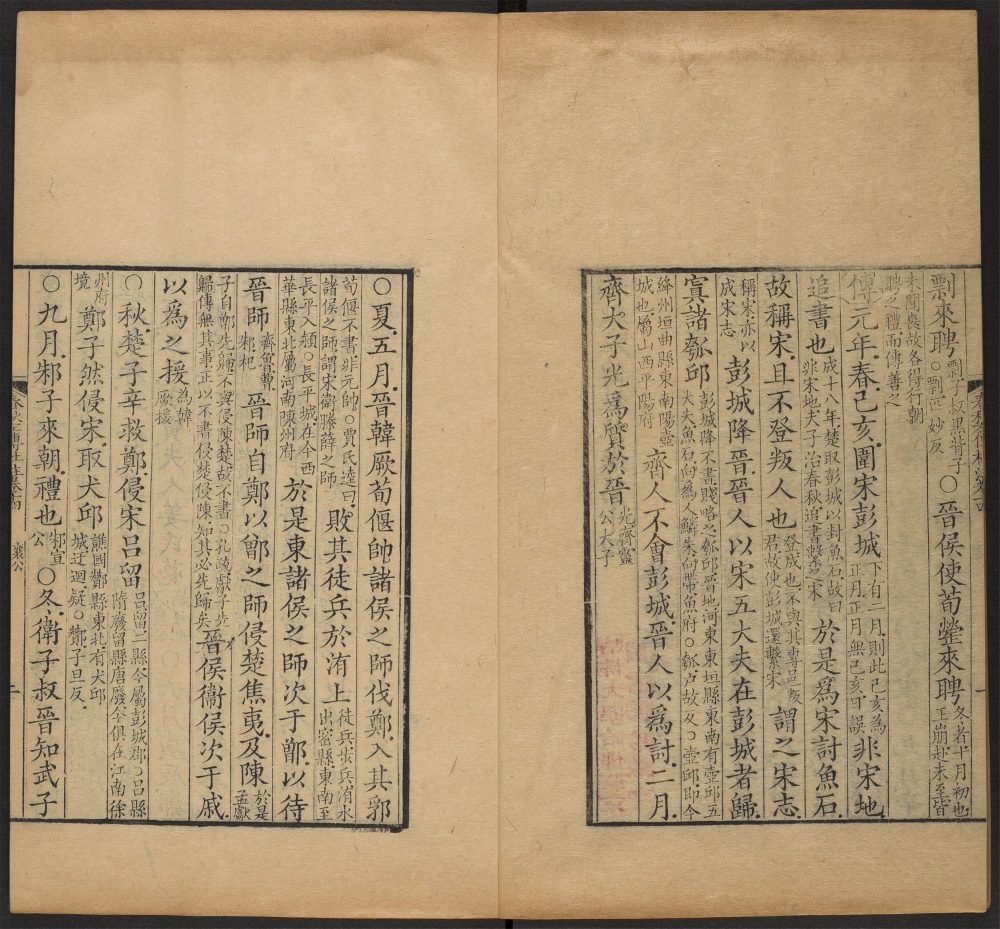 剽來聘剽子叔黑背子○剽匹妙反○晉侯使荀罃來聘冬者十月初也王崩赴未至皆
未聞喪故各得行朝聘之禮而傳善之
傳元年春己亥圍宋彭城下有二月則此己亥爲正月正月無己亥日誤非宋地
追書也成十八年楚取彭城以封魚石故曰非宋地夫子治春秋追書繫之宋於是爲宋討魚石
故稱宋且不登叛人也登成也不與其專邑叛君故使彭城還繫宋謂之宋志
稱宋亦以成宋志彭城降晉晉人以宋五大夫在彭城者歸
寘諸瓠邱彭城降不書賤略之瓠邱晉地河東東垣縣東南有壺邱五大夫魚石向爲人鱗朱向帶魚府○瓠户故反○壺邱即今
絳州垣曲縣東南陽壺城也屬山西平陽府齊人不會彭城晉人以爲討二月
齊大子光爲質於晉光齊靈公大子
○夏五月晉韓厥荀偃帥諸侯之師伐鄭入其郛
荀偃不書非元帥○賈氏逵曰諸侯之師謂宋衛滕薛之師敗其徒兵於洧上徒兵步兵洧水出密縣東南至
長平入潁○長平城在今西華縣東北屬河南陳州府於是東諸侯之師次于鄫以待
晉師齊魯曹邾杞晉師自鄭以鄫之師侵楚焦夷及陳於是孟獻
子自鄫先歸不與侵陳楚故不書○孔疏獻子先歸傳無其事正以不書侵楚侵陳知其必先歸矣晉侯衞侯次于戚
以爲之援爲韓厥援
○秋楚子辛救鄭侵宋呂留呂留二縣今屬彭城郡○呂縣隋廢留縣唐廢今俱在江南徐
州府境鄭子然侵宋取犬邱譙國酇縣東北有犬邱城迂迴疑○酇子旦反
○九月邾子來朝禮也邾宣公○冬衛子叔晉知武子
襄公